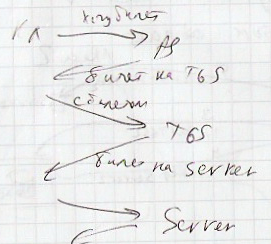 хочу билет
КЛ
AS
билет на TGS
с билетом
TGS
билет на server
Server